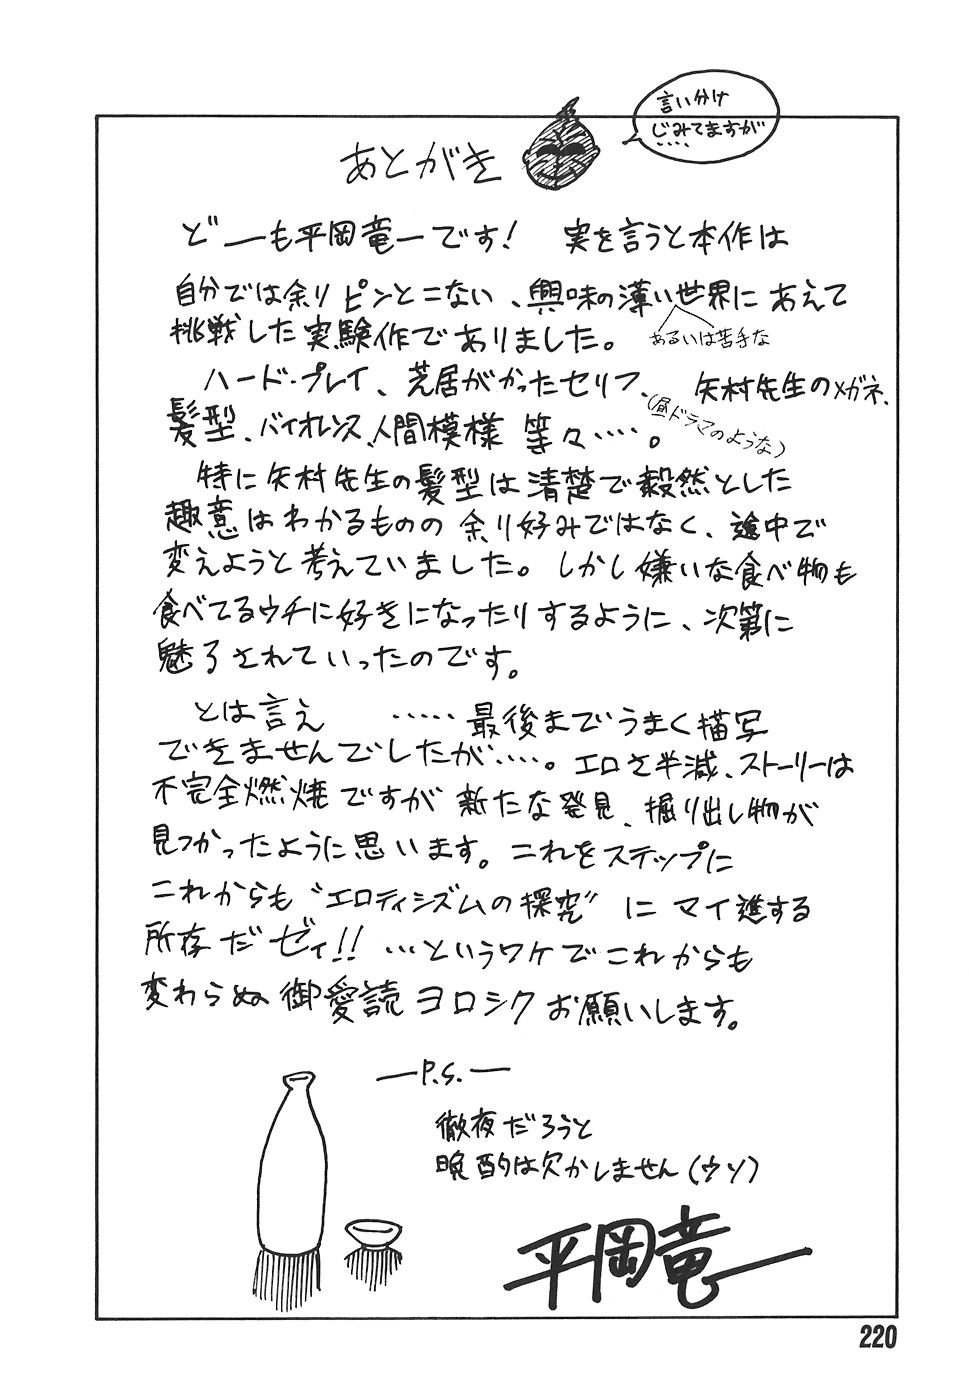 あとがき
言い分け
じみてますが
‥‥
どーも平岡竜一です! 実を言うと本作は
自分では余りピンとこない、興味の薄い世界にあえて
あるいは苦手な
挑戦した実験作でありました。
ハード・プレイ、芝居がかったセリフ、矢村先生のメガネ、
髪型、バイオレンス、人間模様 等々‥‥。
(昼ドラマのような)
特に矢村先生の髪型は清楚で毅然とした
趣意はわかるものの 余り好みではなく、途中で
変えようと考えていました。しかし嫌いな食べ物も
食べてるウチに好きになったりするように、次第に
魅了されていったのです。
とは言え ‥‥‥最後までうまく描写
できませんでしたが‥‥。エロさ半減、ストーリーは
不完全燃焼ですが 新たな発見、掘り出し物が
見つかったように思います。これをステップに
これからも“エロティシズムの探究”にマイ進する
所存だゼィ!! …というワケでこれからも
変わらぬ御愛読ヨロシクお願いします。
―P.S.―
徹夜だろうと
晩酌は欠かしません(ウソ)
平岡竜一
220